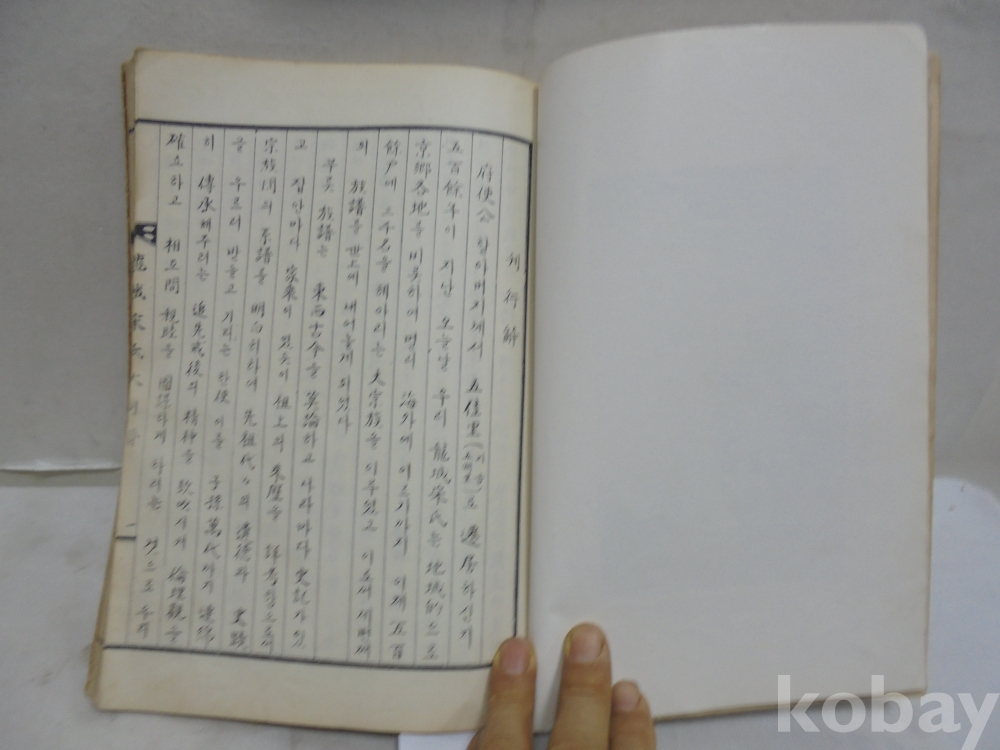 刊行辭
府使公 할아버지께서 五佳里(지금 오배리)로 遷居하신지
五百餘年이 지난 오늘날 우리 龍城宋氏는 地域的으로
京鄕各地를 비롯하여 멀리 海外에 이르기까지 이제 五百
餘戶에 三千名을 헤아리는 大宗族을 이루었고 이로써 세번째
의 族譜를 世上에 내어놓게 되었다
무릇 族譜는 東西古今을 莫論하고 나라마다 史記가 있
고 집안마다 家乘이 있듯이 祖上의 來歷을 詳考함으로써
宗族間의 系譜를 明白히하여 先祖代々의 遺德과 史蹟
을 우르러 받들고 기리는 한便 이를 子孫萬代까지 連綿
히 傳承해주려는 追先 後의 精神을 鼓吹시켜 倫理觀을
確立하고 相互間 親睦을 圖謀하게 하려는 것으로
宋氏
一
kobay